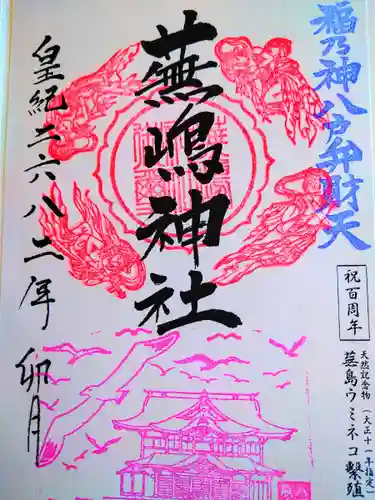 福乃神八戸弁財天
祝百周年
天然記念物（大正十一年指定）
蕪島ウミネコ繁殖
蕪嶋神社
皇紀二六八二年
卯月